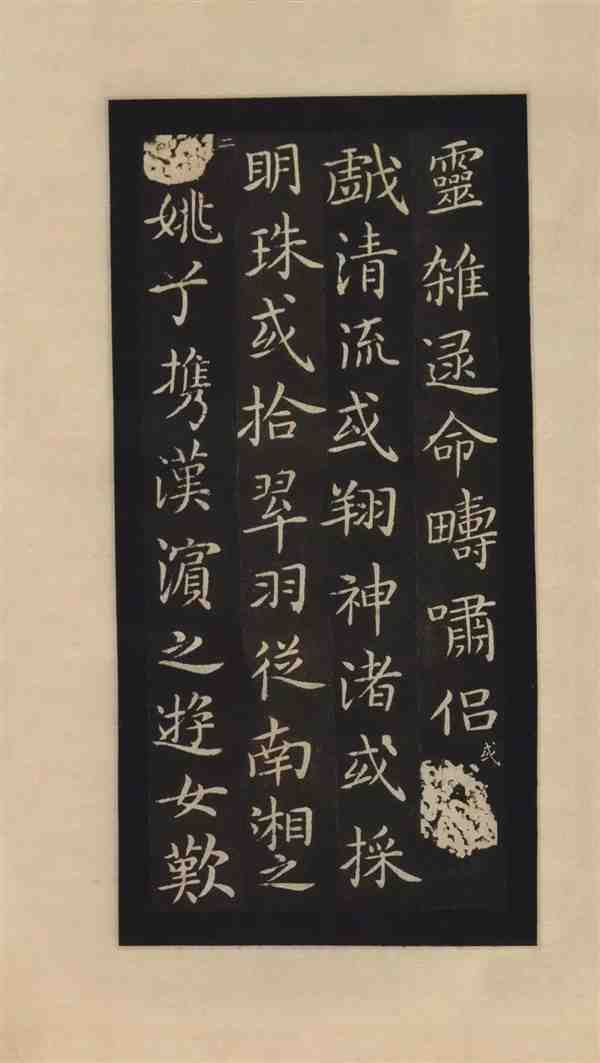 靈雜遝命疇嘯侶或
戲清流或翔神渚或採
明珠或拾翠羽從南湘之
二姚兮携漢濱之遊女歎